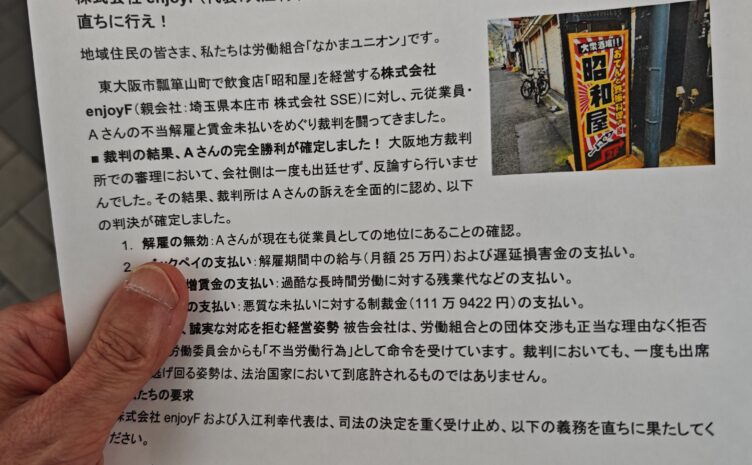 株式会社 enjoyF(代表:入江利
直ちに行え!
地域住民の皆さま、私たちは労働組合「なかまユニオン」です。
東大阪市瓢箪山町で飲食店「昭和屋」を経営する株式会社
enjoyF(親会社:埼玉県本庄市 株式会社 SSE)に対し、元従業員・
Aさんの不当解雇と賃金未払いをめぐり裁判を闘ってきました。
■ 裁判の結果、Aさんの完全勝利が確定しました! 大阪地方裁判
所での審理において、会社側は一度も出廷せず、反論すら行いませ
んでした。その結果、裁判所はAさんの訴えを全面的に認め、以下
の判決が確定しました。
1. 解雇の無効:Aさんが現在も従業員としての地位にあることの確認。
2. バックペイの支払い:解雇期間中の給与(月額 25 万円)および遅延損害金の支払い。
増賃金の支払い:過酷な長時間労働に対する残業代などの支払い。
の支払い:悪質な未払いに対する制裁金(111 万 9422 円)の支払い。
、誠実な対応を拒む経営姿勢 被告会社は、労働組合との団体交渉も正当な理由なく拒否
労働委員会からも「不当労働行為」として命令を受けています。裁判においても、一度も出席
逃げ回る姿勢は、法治国家において到底許されるものではありません。
たちの要求
株式会社 enjoyF および入江利幸代表は、司法の決定を重く受け止め、以下の義務を直ちに果たしてく
ださい。
大衆酒場!!
昭和屋